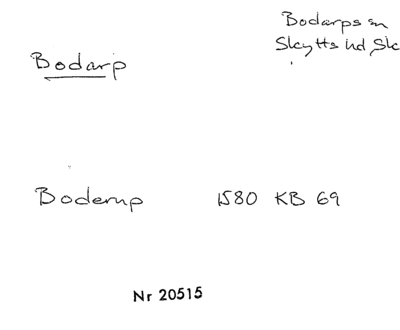 Bodarps sn
Skytts hd Sk
Bodarp
Boderup 1580 KB 69
Nr 20515